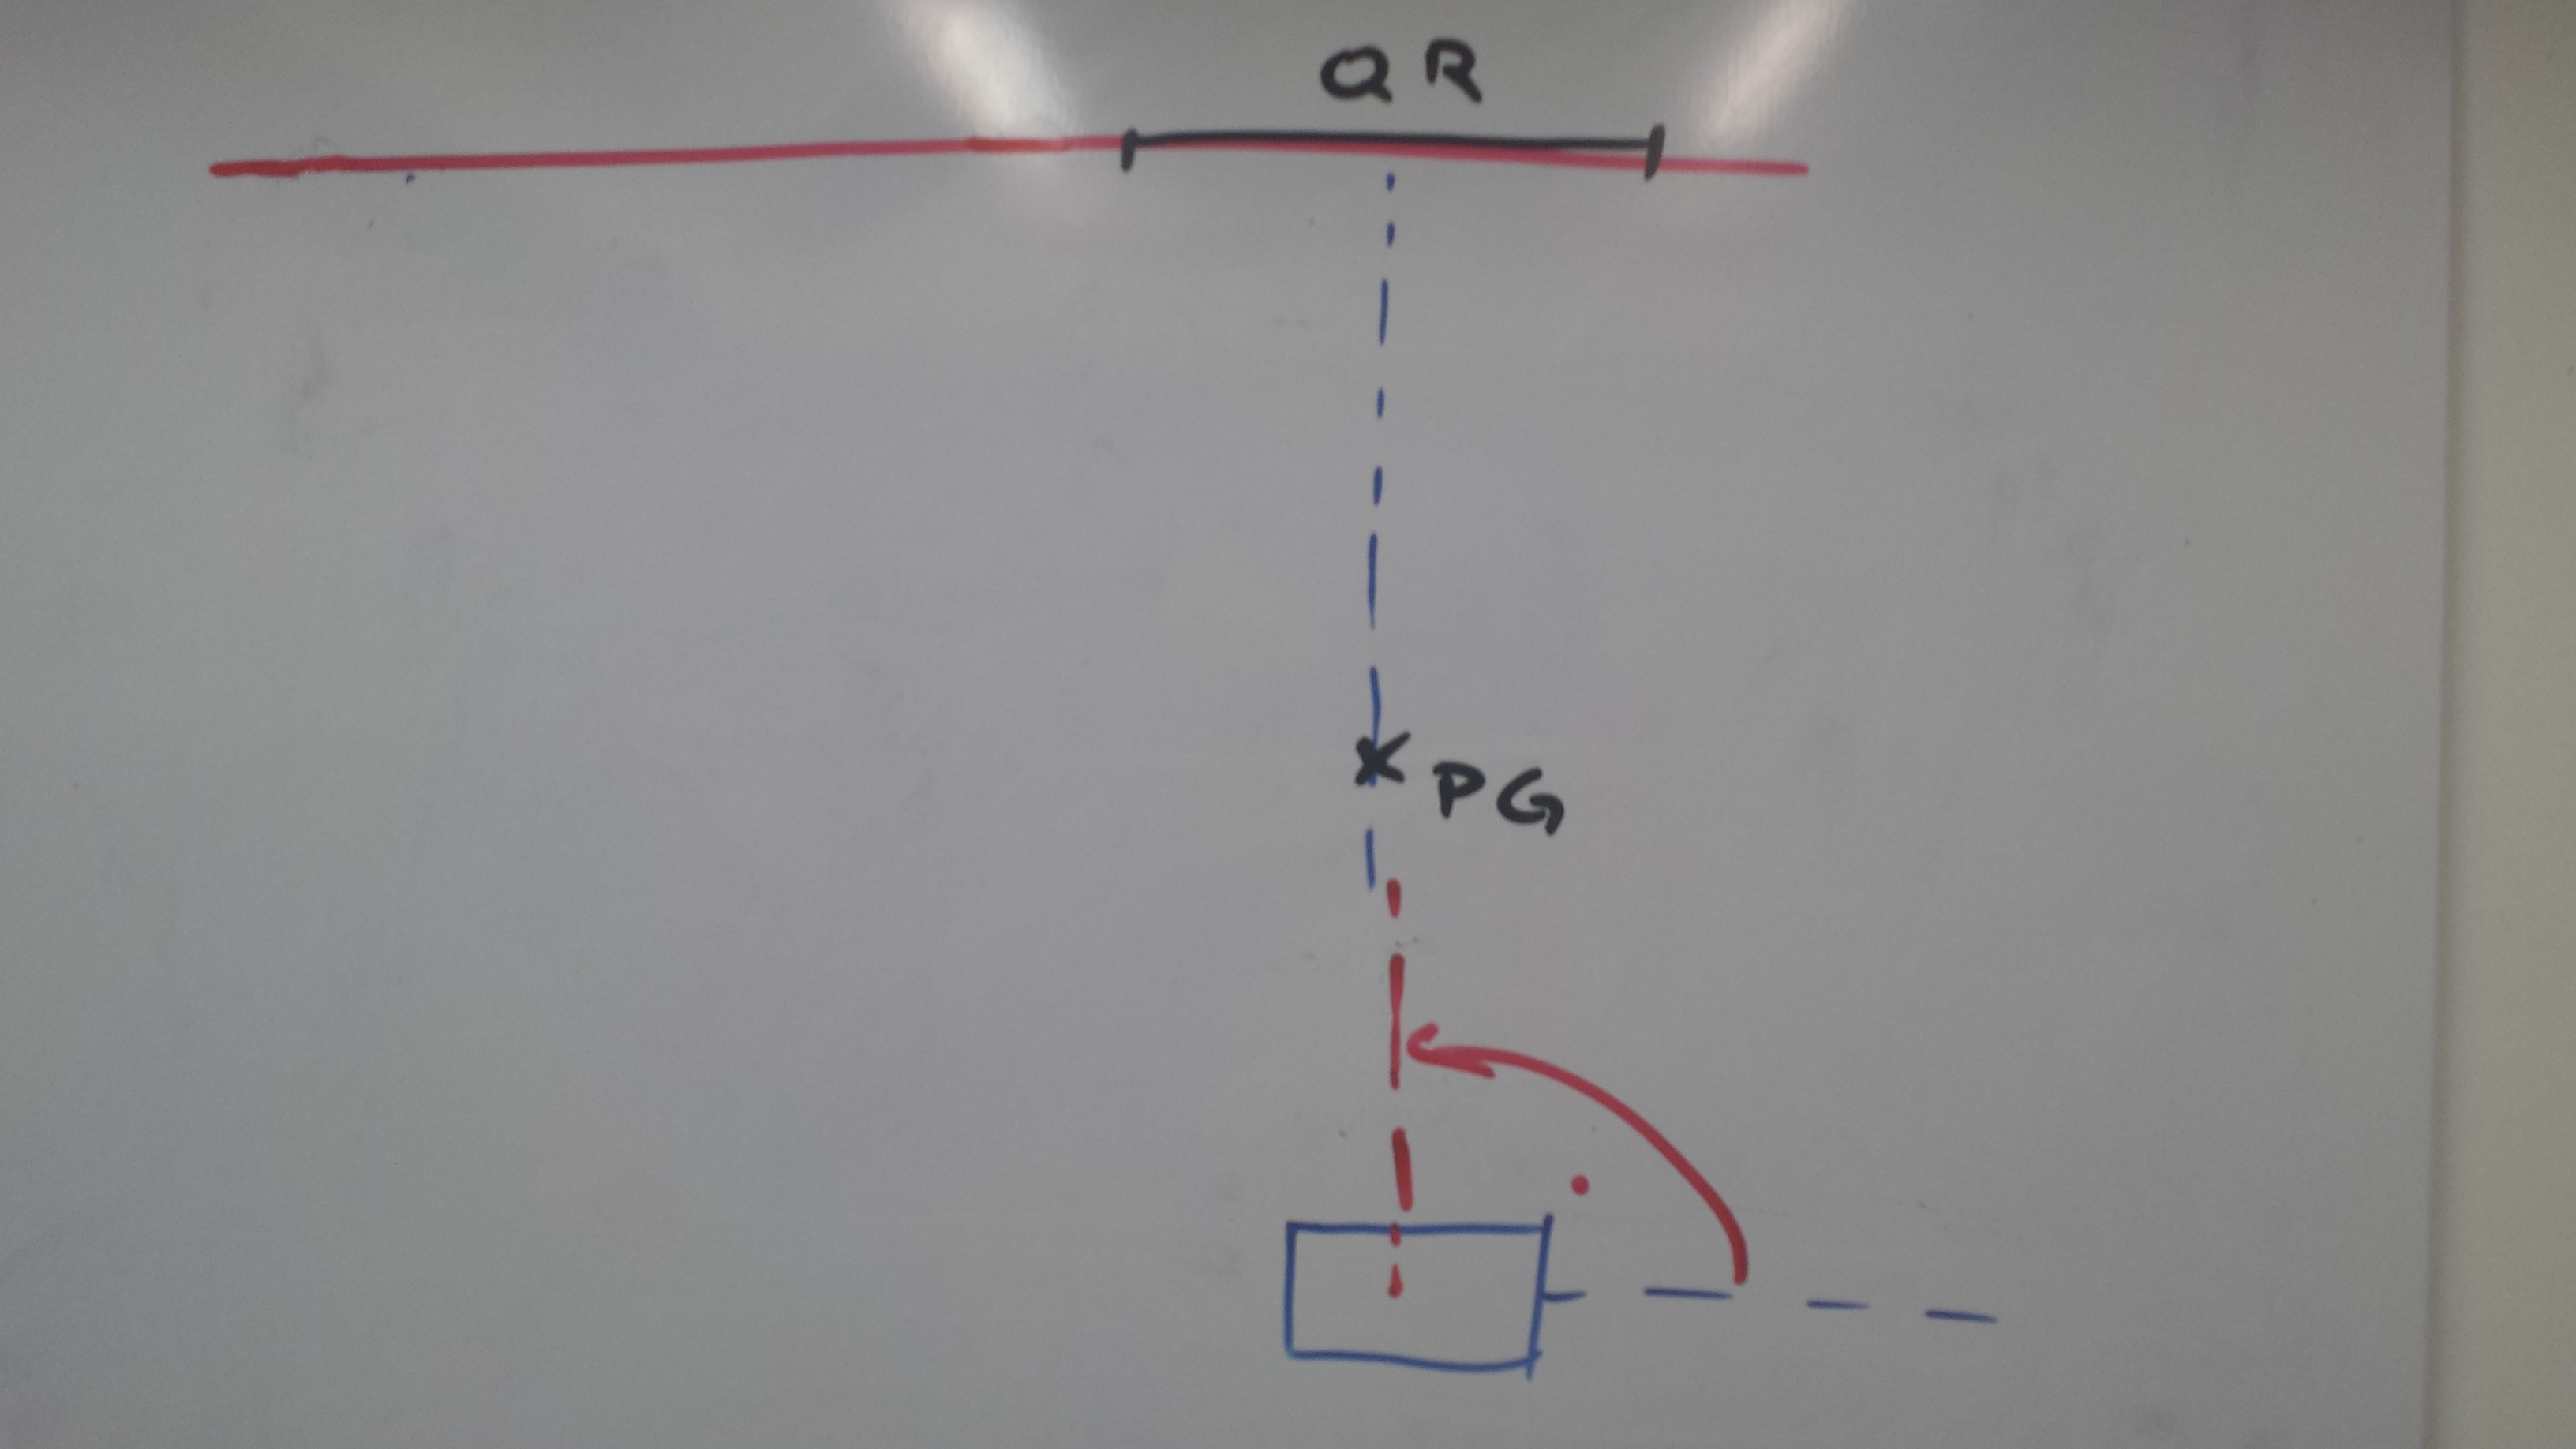 QR
PG